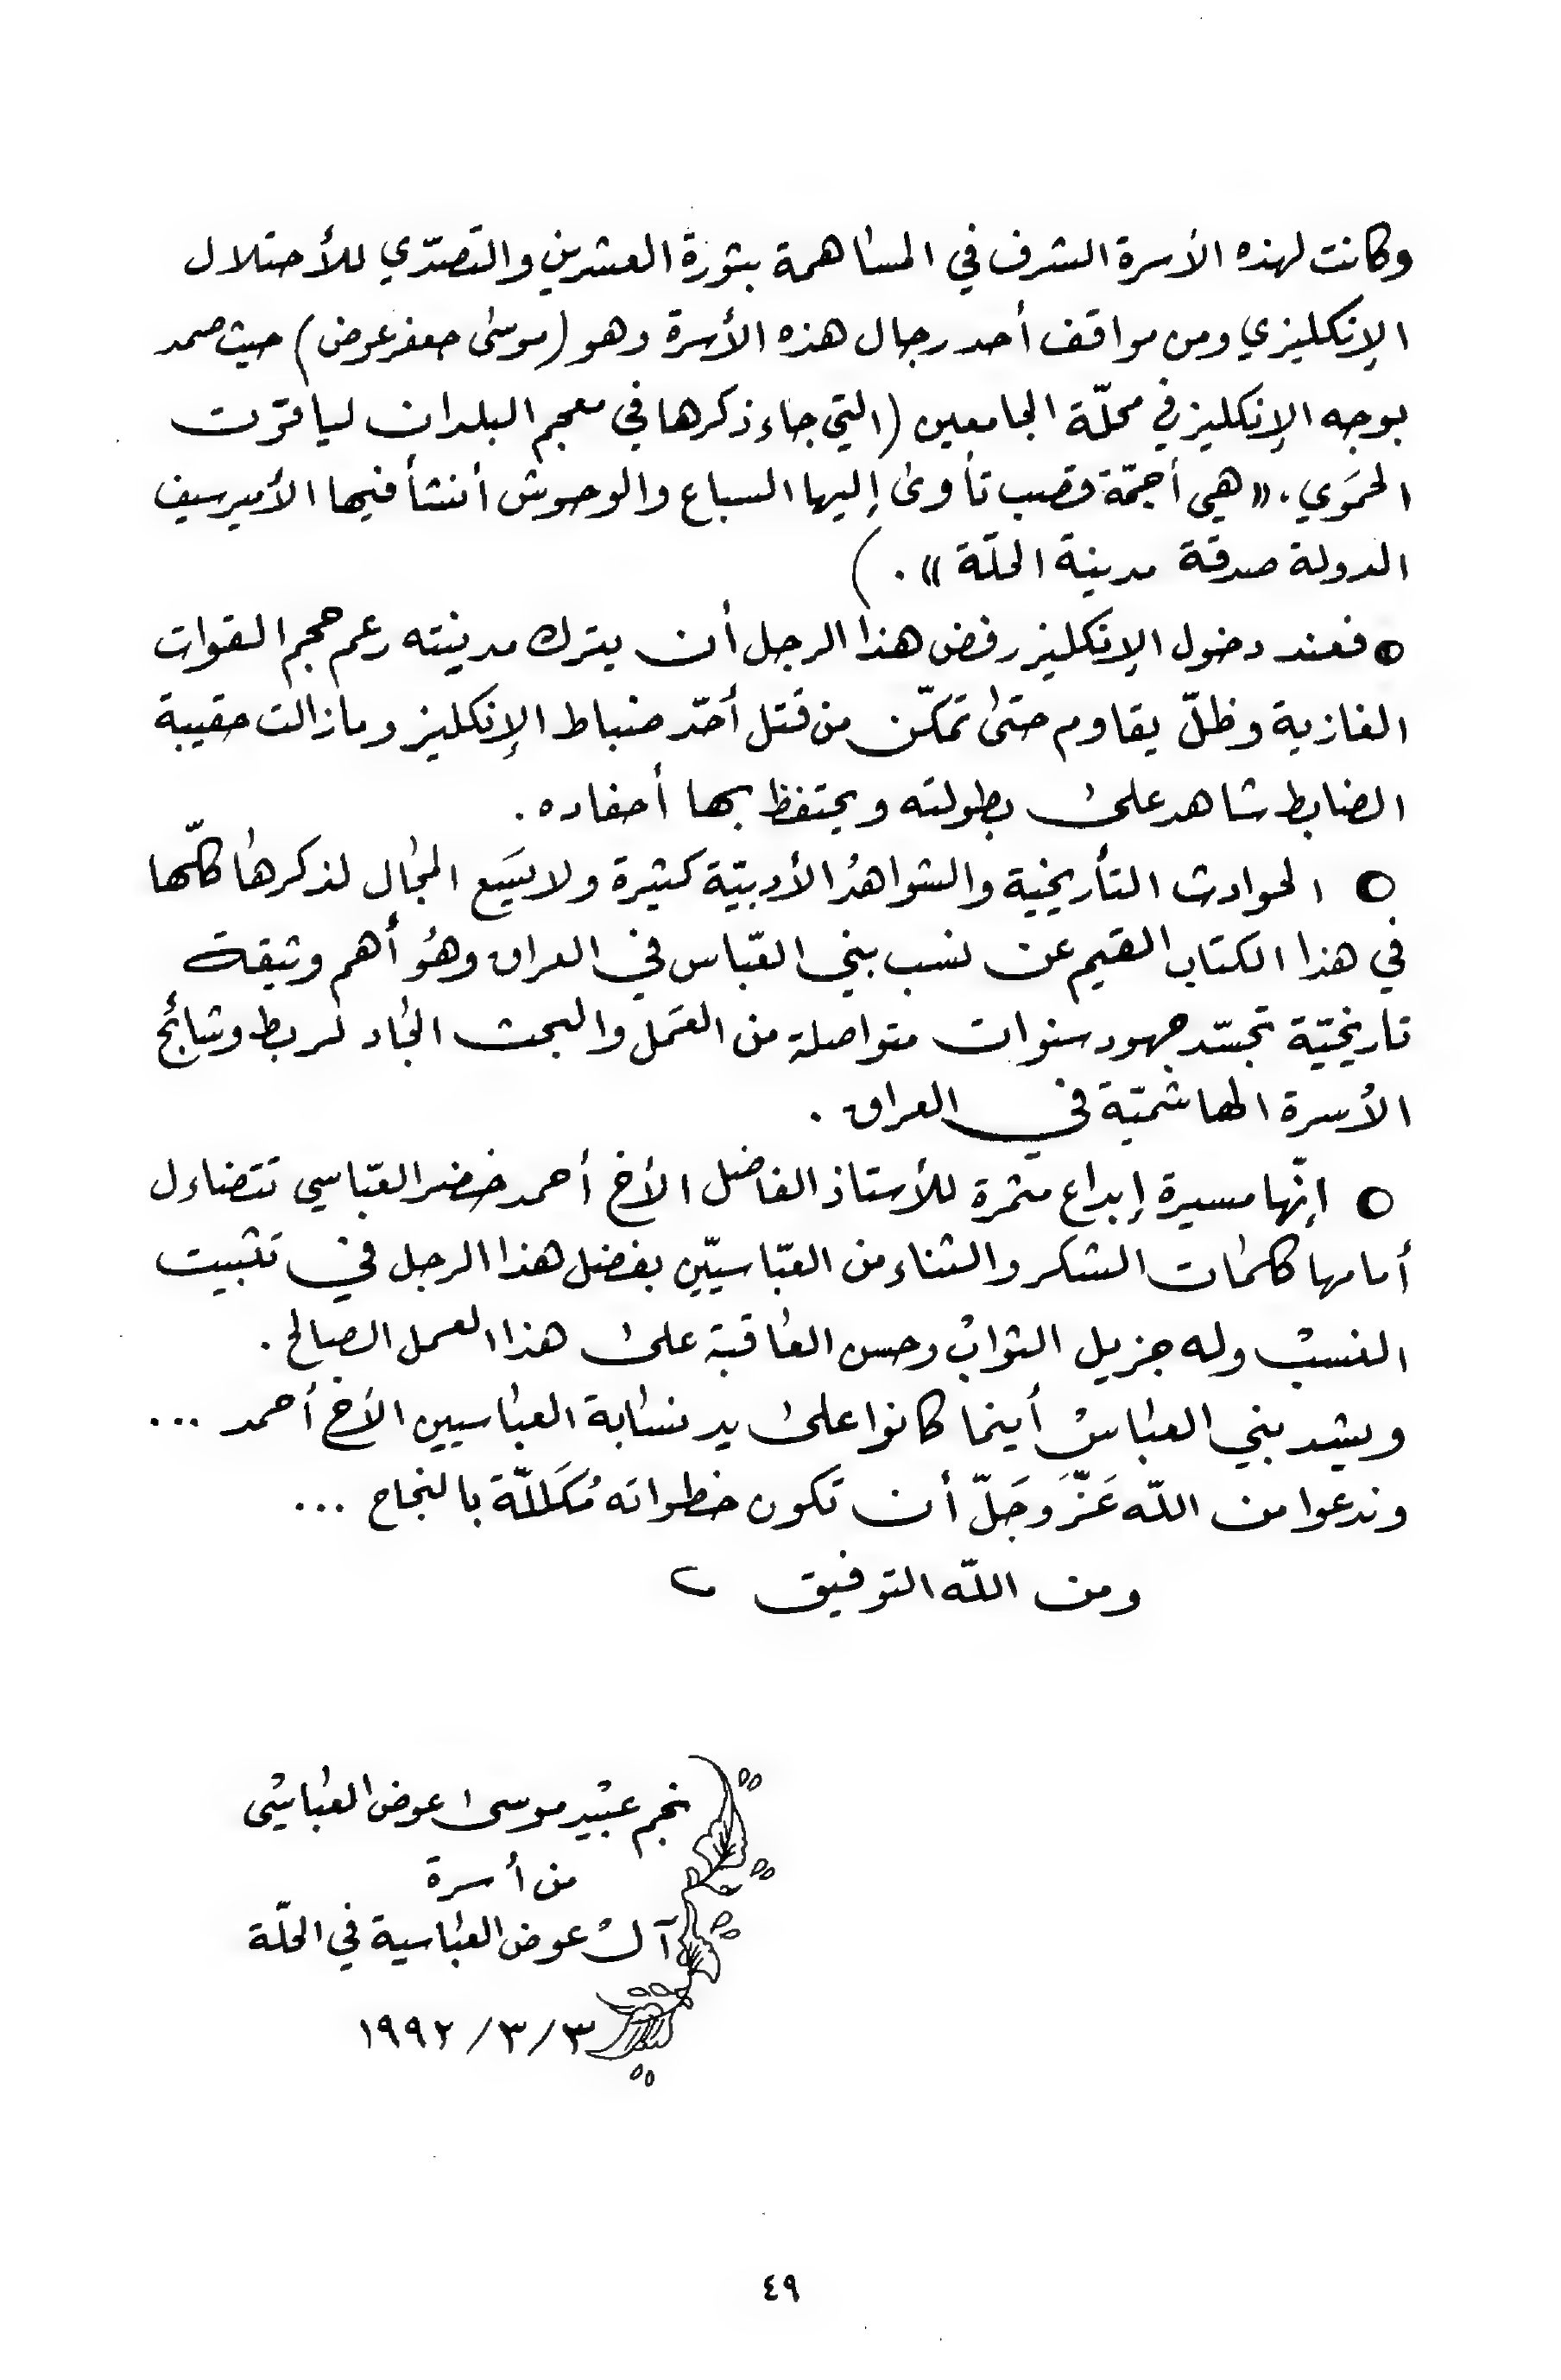 وكانت لهذه الأسرة الشرف في المساهمة بثورة العشرين والتصدّي للأحتلال
الإنكليزي ومن مواقف أحد رجال هذه الأسرة وهو (موسى جعفر عوض) حيث صمد
بوجه الإنكليز في محلّة الجامعين (التي جاء ذكرها في معجم البلدان لياقوت
الحمَوي. «هي أجمّة قصب تأوى إليها السباع والوحوش أنشأ فيها الأمير سيف
الدولة صدقة مدينة الحلّة».)
● فعند دخول الإنكليز رفض هذا الرجل أن يترك مدينته رغم حجم القوات
الغازية وظلّ يقاوم حتى تمكّن من قتل أحّد ضباط الإنكليز ومازالت حقيبة
الضابط شاهد على بطولته ويحتفظ بها أحفاده.
○ الحوادث التأريخية والشواهدُ الأدبيّة كثيرة ولا يسَيع المجال لذكرها كلّها
في هذا الكتاب القيم عن نسب بني العبّاس في العراق وهُو أهم وثيقة
تاريخيّة تجسّد جهود سنوات متواصلة من العمَل والبحث الجاد لربط وشائج
الأسرة الهاشميّة في العراق.
○ إنّها مسيرة إبداع مثمرة للأستاذ الفاضل الأخ أحمد خضر العبّاسي تتضاءل
أمامها كلمات الشكر والثناء من العبّاسيّين بفضل هذا الرجل في تثبيت
النسب وله جزيل الثواب وحسن العاقبة على هذا العمل الصالح.
ويشد بني العباس أينما كانوا على يد نسابة العباسيين الأخ أحمد ...
وندعوا من اللّه عَزّ وَجَلّ أن تكون خطواته مُكَلّلة بالنجاح ...
ومن اللّه التوفيق
نجم عبيد موسى عوض العباسي
من أسرة
آل عوض العباسية في الحلّة
٣/٣/١٩٩٢
٤٩